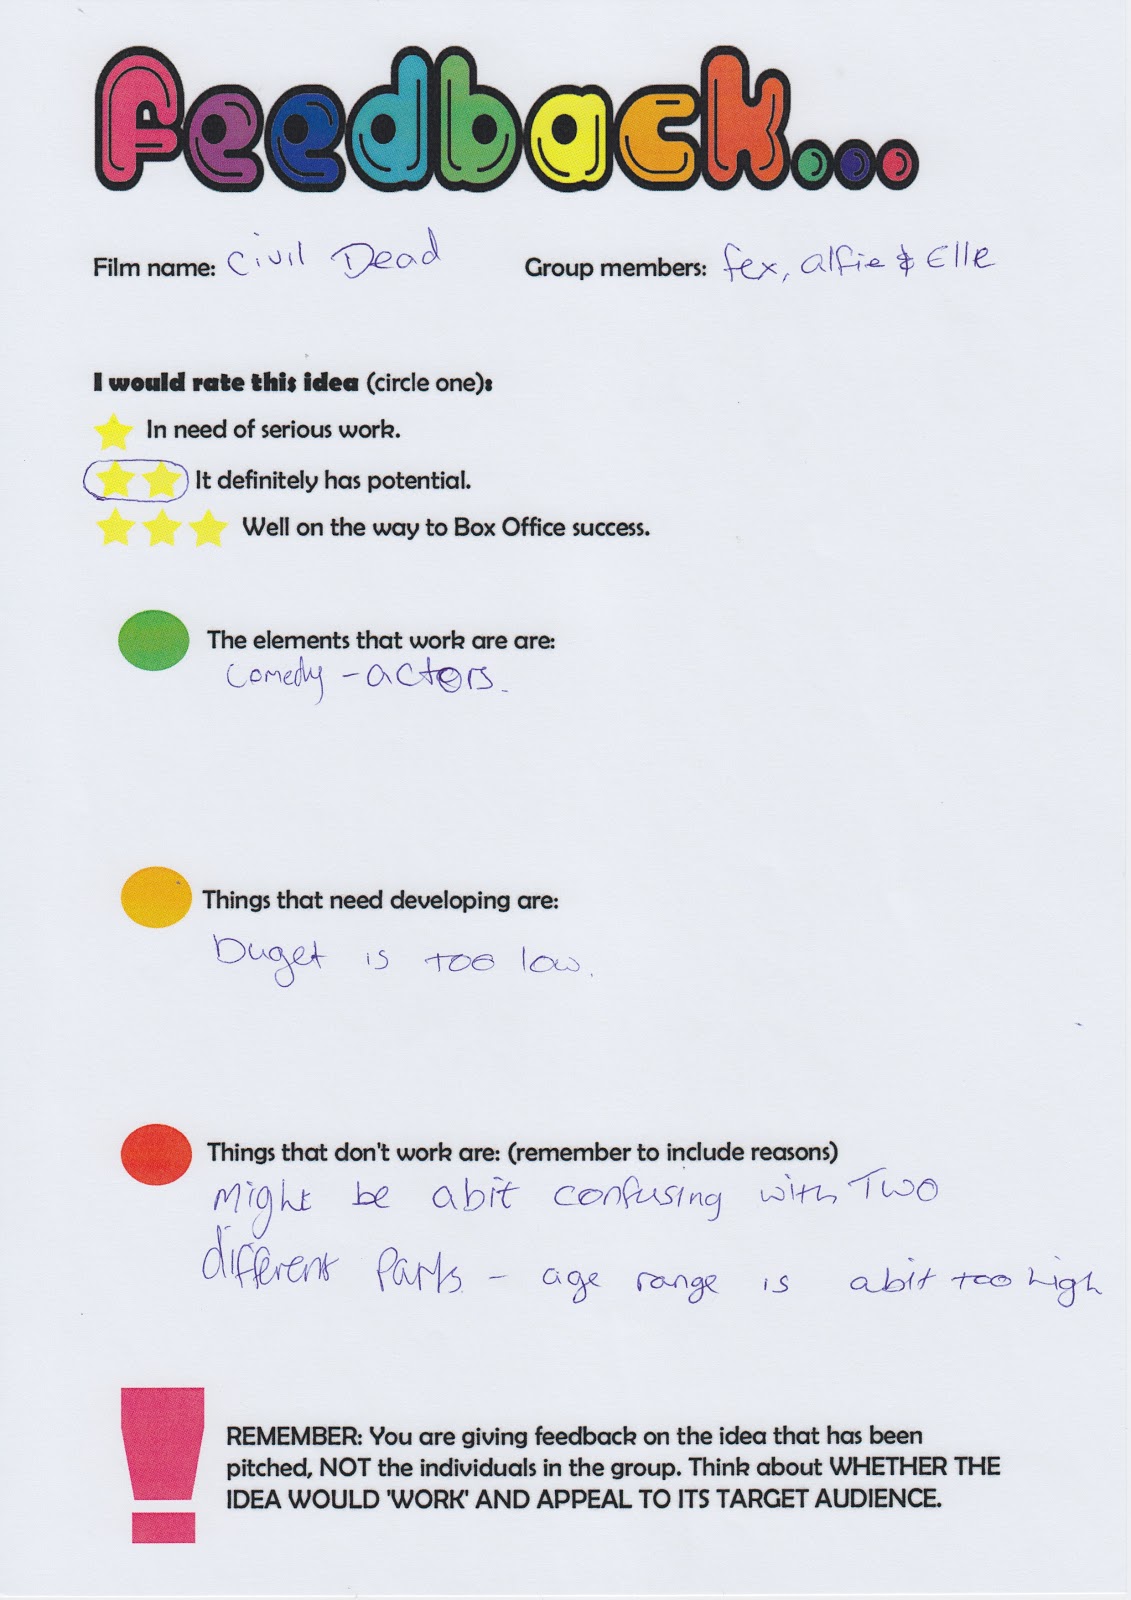 Feedback...
Film name: Civil Dead Group members: fex, alfie & Elle
I would rate this idea (circle one):
In need of serious work.
It definitely has potential.
Well on the way to Box Office success.
The elements that work are are:
Comedy - actors.
Things that need developing are:
Duget is too low.
Things that don't work are: (remember to include reasons)
Might be abit confusing with Two
different Parts - age range is abit too high
REMEMBER: You are giving feedback on the idea that has been
pitched, NOT the individuals in the group. Think about WHETHER THE
IDEA WOULD 'WORK' AND APPEAL TO ITS TARGET AUDIENCE.